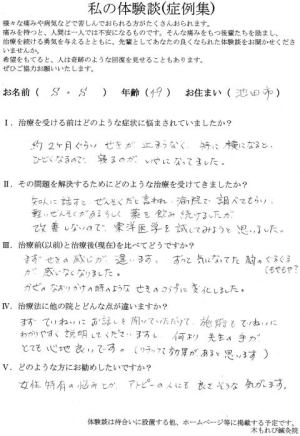 私の体験談(症例集)
様々な痛みや病気などで苦しんでおられる方がたくさんおられます。
痛みを持つと、人間は一人では不安になるものです。そんな痛みをもつ後輩たちを励まし、
治療を続ける勇気を与えるとともに、先輩としてあなたの良くなられた体験談をお聞かせくださいま
せんか。
希望をもてると、人は奇跡のような回復を見せることもあります。
ぜひご協力お願いいたします。
お名前 ( S・S ) 年齢 (49) お住まい ( 池田市 )
Ⅰ．治療を受ける前はどのような症状に悩まされていましたか?
約2ヶ月ぐらい せきが 止まらなく、特に 横になると、
ひどくなるので 寝るのが いやになってました。
Ⅱ．その問題を解決するためにどのような治療を受けてきましたか?
知人に話すと ぜんそくだと言われ 病院で 調べてもらい、
軽いぜんそくがあるらしく 薬を飲み続けましたが
改善しないので、東洋医学を 試してみようと思いました。
Ⅲ．治療前(以前)と治療後(現在)を比べてどうですか?
まず せきの感じが 違います。 ずっと 気になってた 胸の
が 感じなくなりました。
かぜの なおりかけの時のような せきのコンコンに 変化しました。
Ⅳ．治療法に他の院とどんな点が違いますか?
まず ていねいに お話しを 聞いていただけて、施術も ていねいに
わかりやすく 説明してくださいますし 何より 先生の手が
とても心地良いです。(リラックス効果が あると思います)
Ⅴ．どのような方にお勧めしたいですか?
女性特有の悩みとか、アトピーの人にも 良さそうな 気がします。
体験談は待合いに設置する他、ホームページ等に掲載する予定です。
木もれび鍼灸院